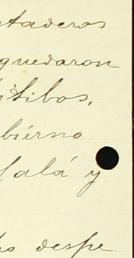 taderos
quedaron
tibos,
bierno
Calá y
despe